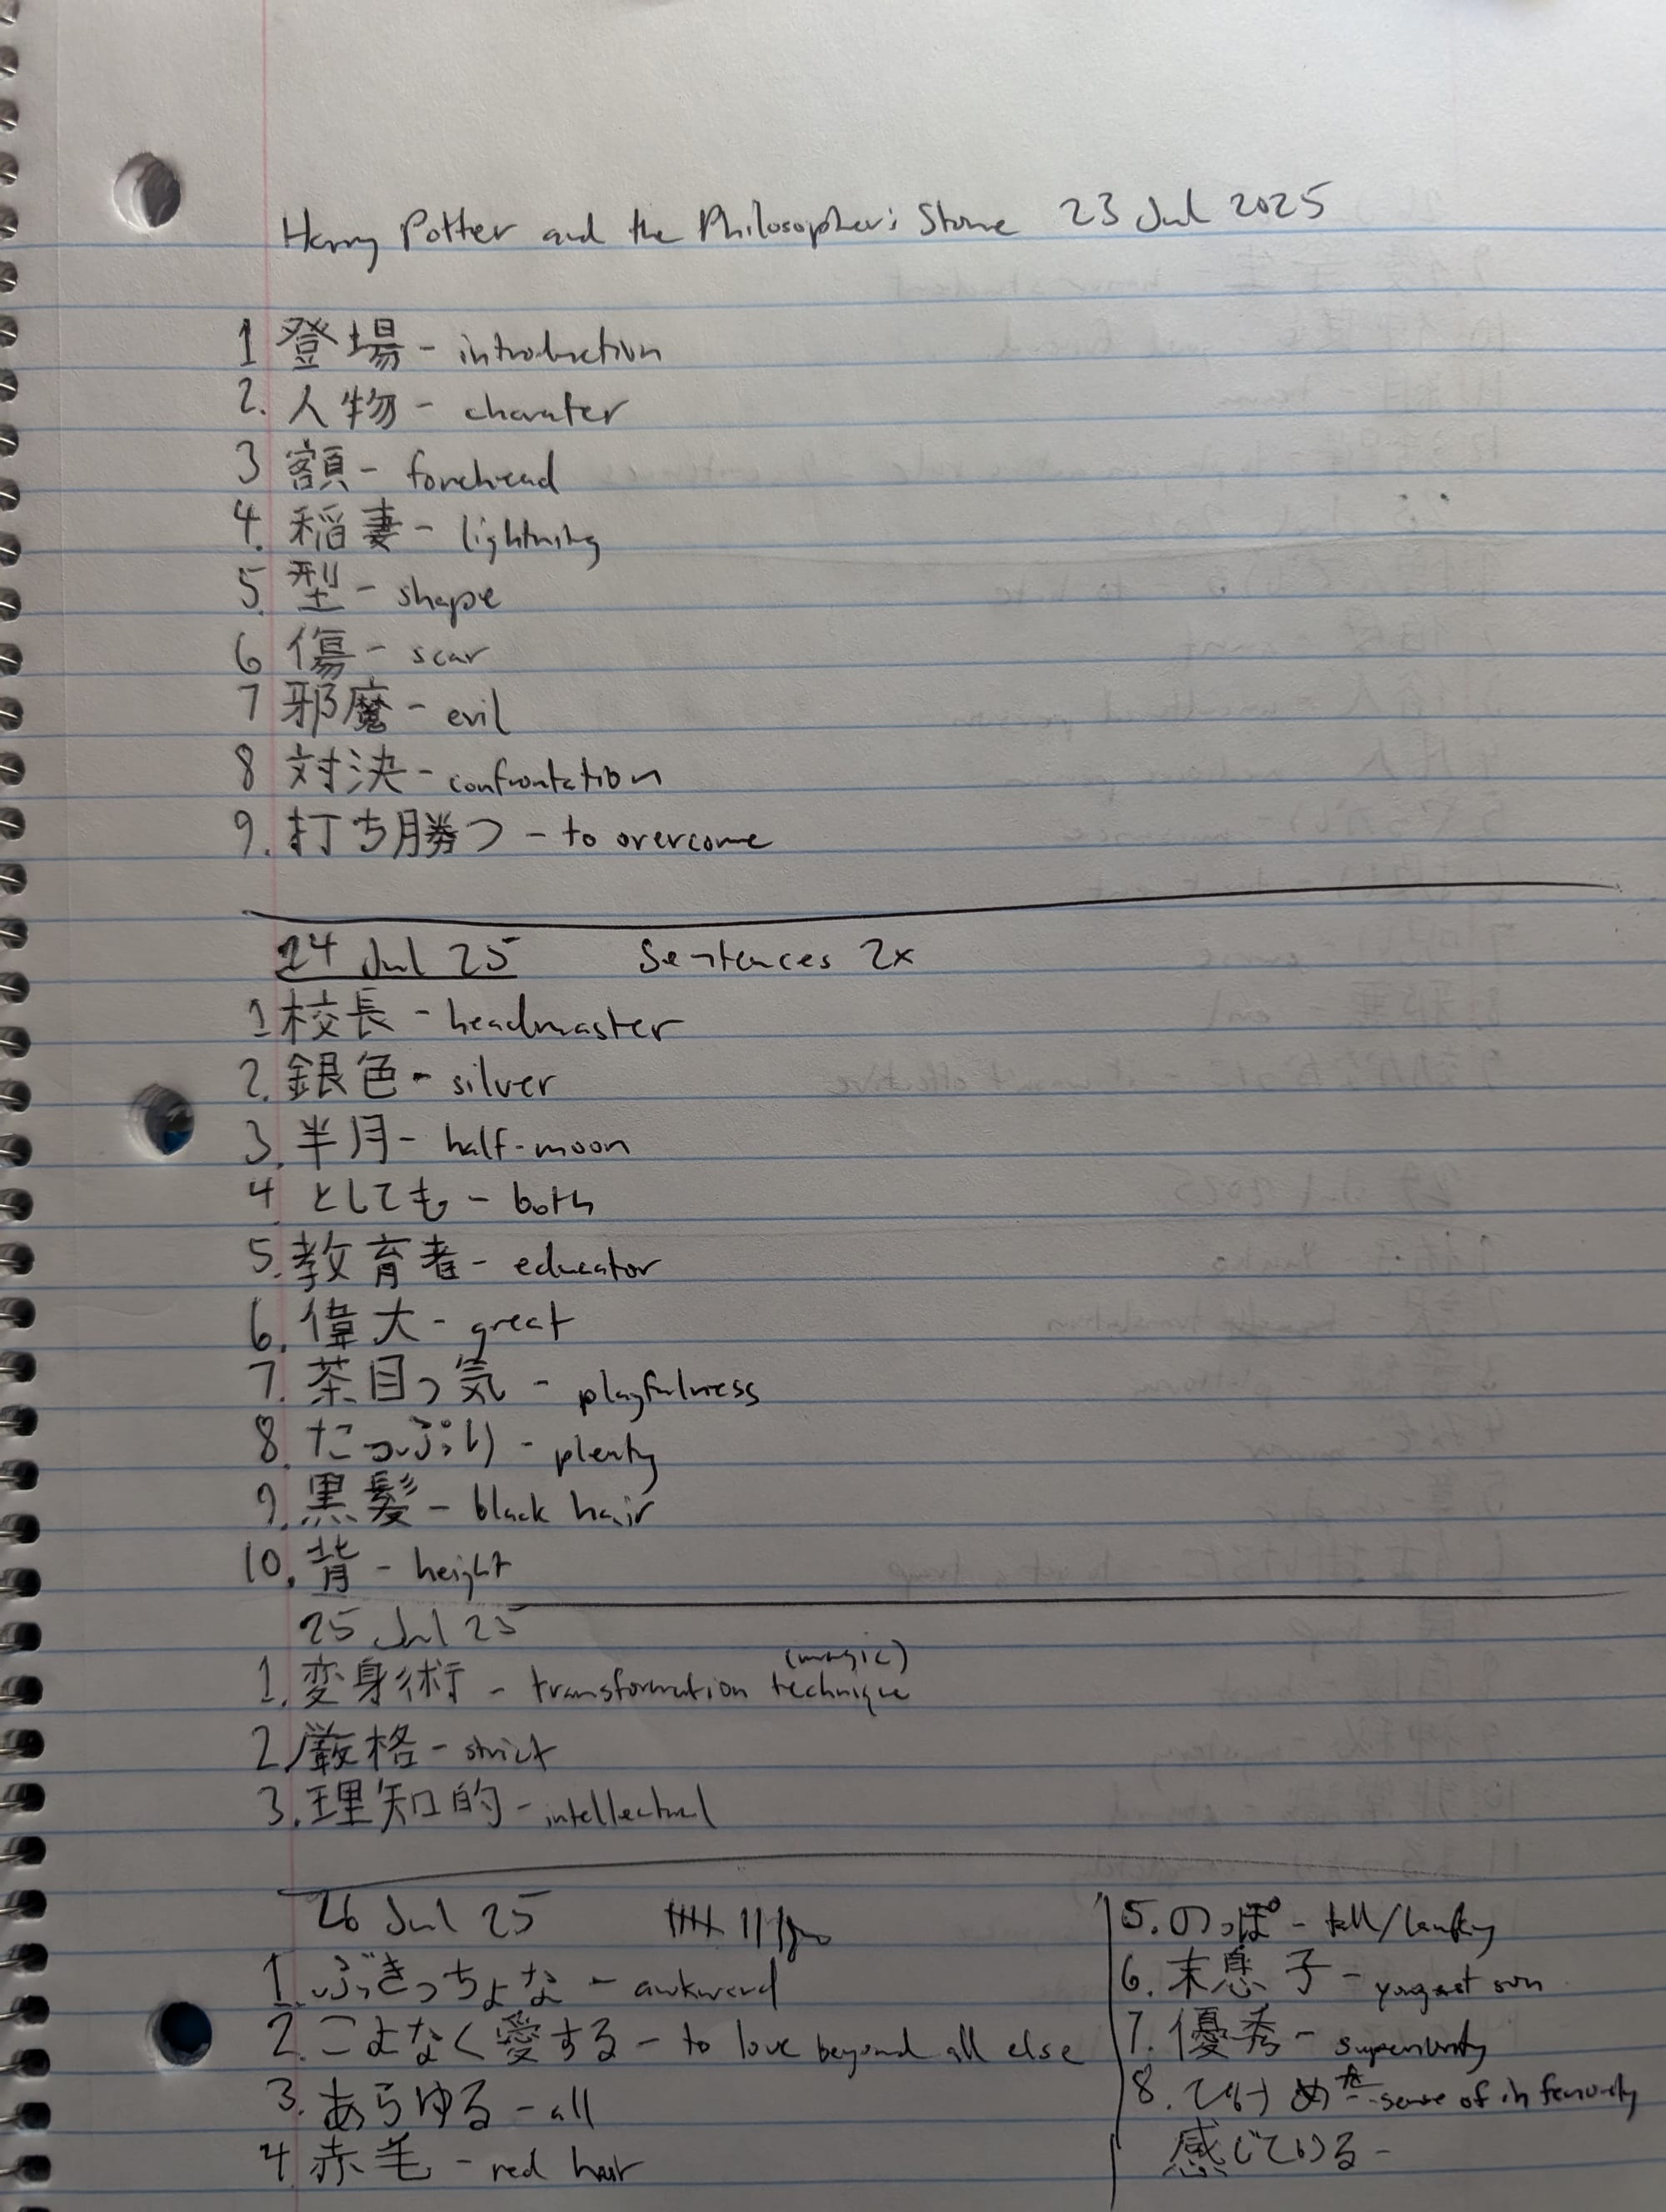 Harry Potter and the Philosopher's Stone 23 Jul 2025
1 登場 - introduction
2. 人物 - charater
3 額 - forehead
4. 稲妻 - lightning
5. 型 - shape
6 傷 - scar
7 邪魔 - evil
8 対決 - confrontation
9. 打ち勝つ - to overcome
24 Jul 25 Sentences 2x
1 校長 - headmaster
2. 銀色 - silver
3. 半月 - half-moon
4 としても - both
5. 教育者 - educator
6. 偉大 - great
7. 茶目っ気 - playfulness
8. たっぷり - plenty
9. 黒髪 - black hair
10. 背 - height
25 Jul 25
(magic)
1. 変身術 - transformation technique
2. 厳格 - strict
3. 理知的 - intellectual
26 Jul 25
1. ぶきっちょな - awkward
2. こよなく愛する - to love beyond all else
3. あらゆる - all
4 赤毛 - red hair
5. のっぽ - tall/lanky
6. 末息子 - yongest son
7. 優秀 - superiority
8. - sense of inferiority
感じている -